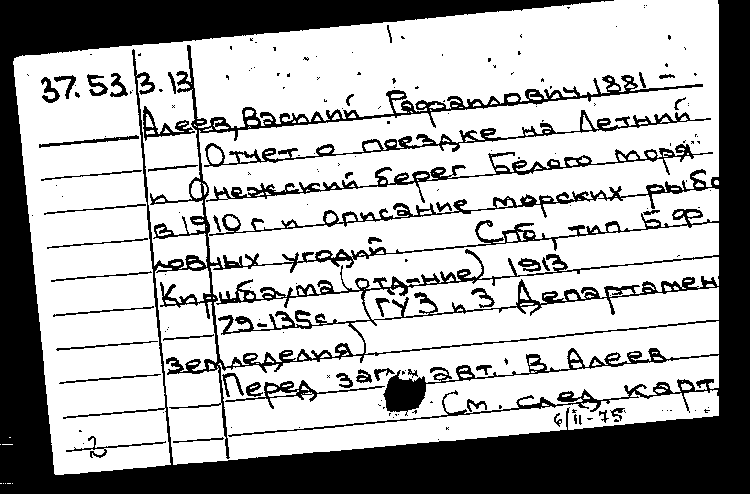 37.53.3.13
Алеев, Василий Рафаилович, 1881 –
Отчет о поездке на Летний
и Онежский берег Белого моря
в 1910 г и описание морских рыбо
ловных угодий. Спб., тип. Б.Ф.
Киршбаума (отд-ние), 1913.
79-135 с. (ГУЗ и З. Департамен
земледелия).
Перед загл. авт.: В. Алеев.
См. след. карт.
6/II-75
2